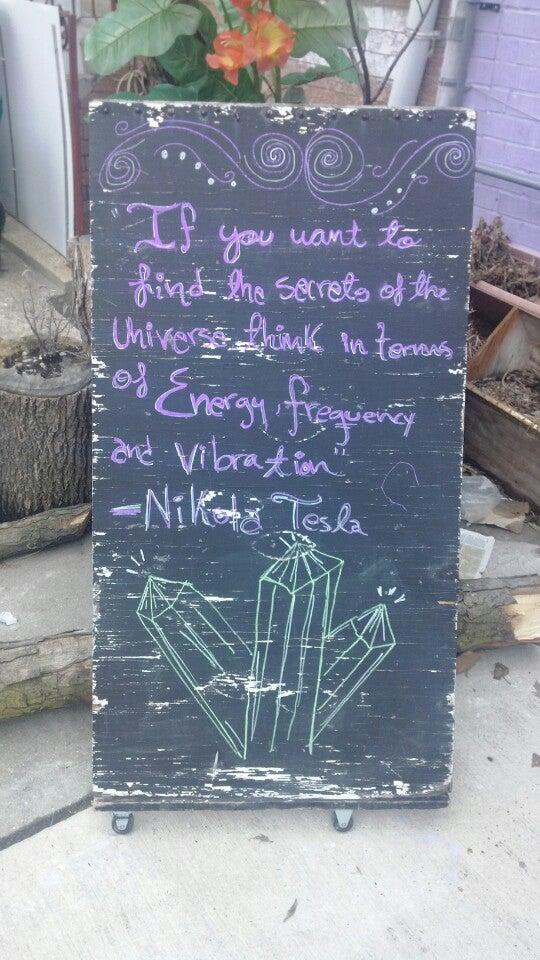 "If you want to
find the secrets of the
Universe think in terms
of Energy, frequency
and Vibration"
-Nikola Tesla